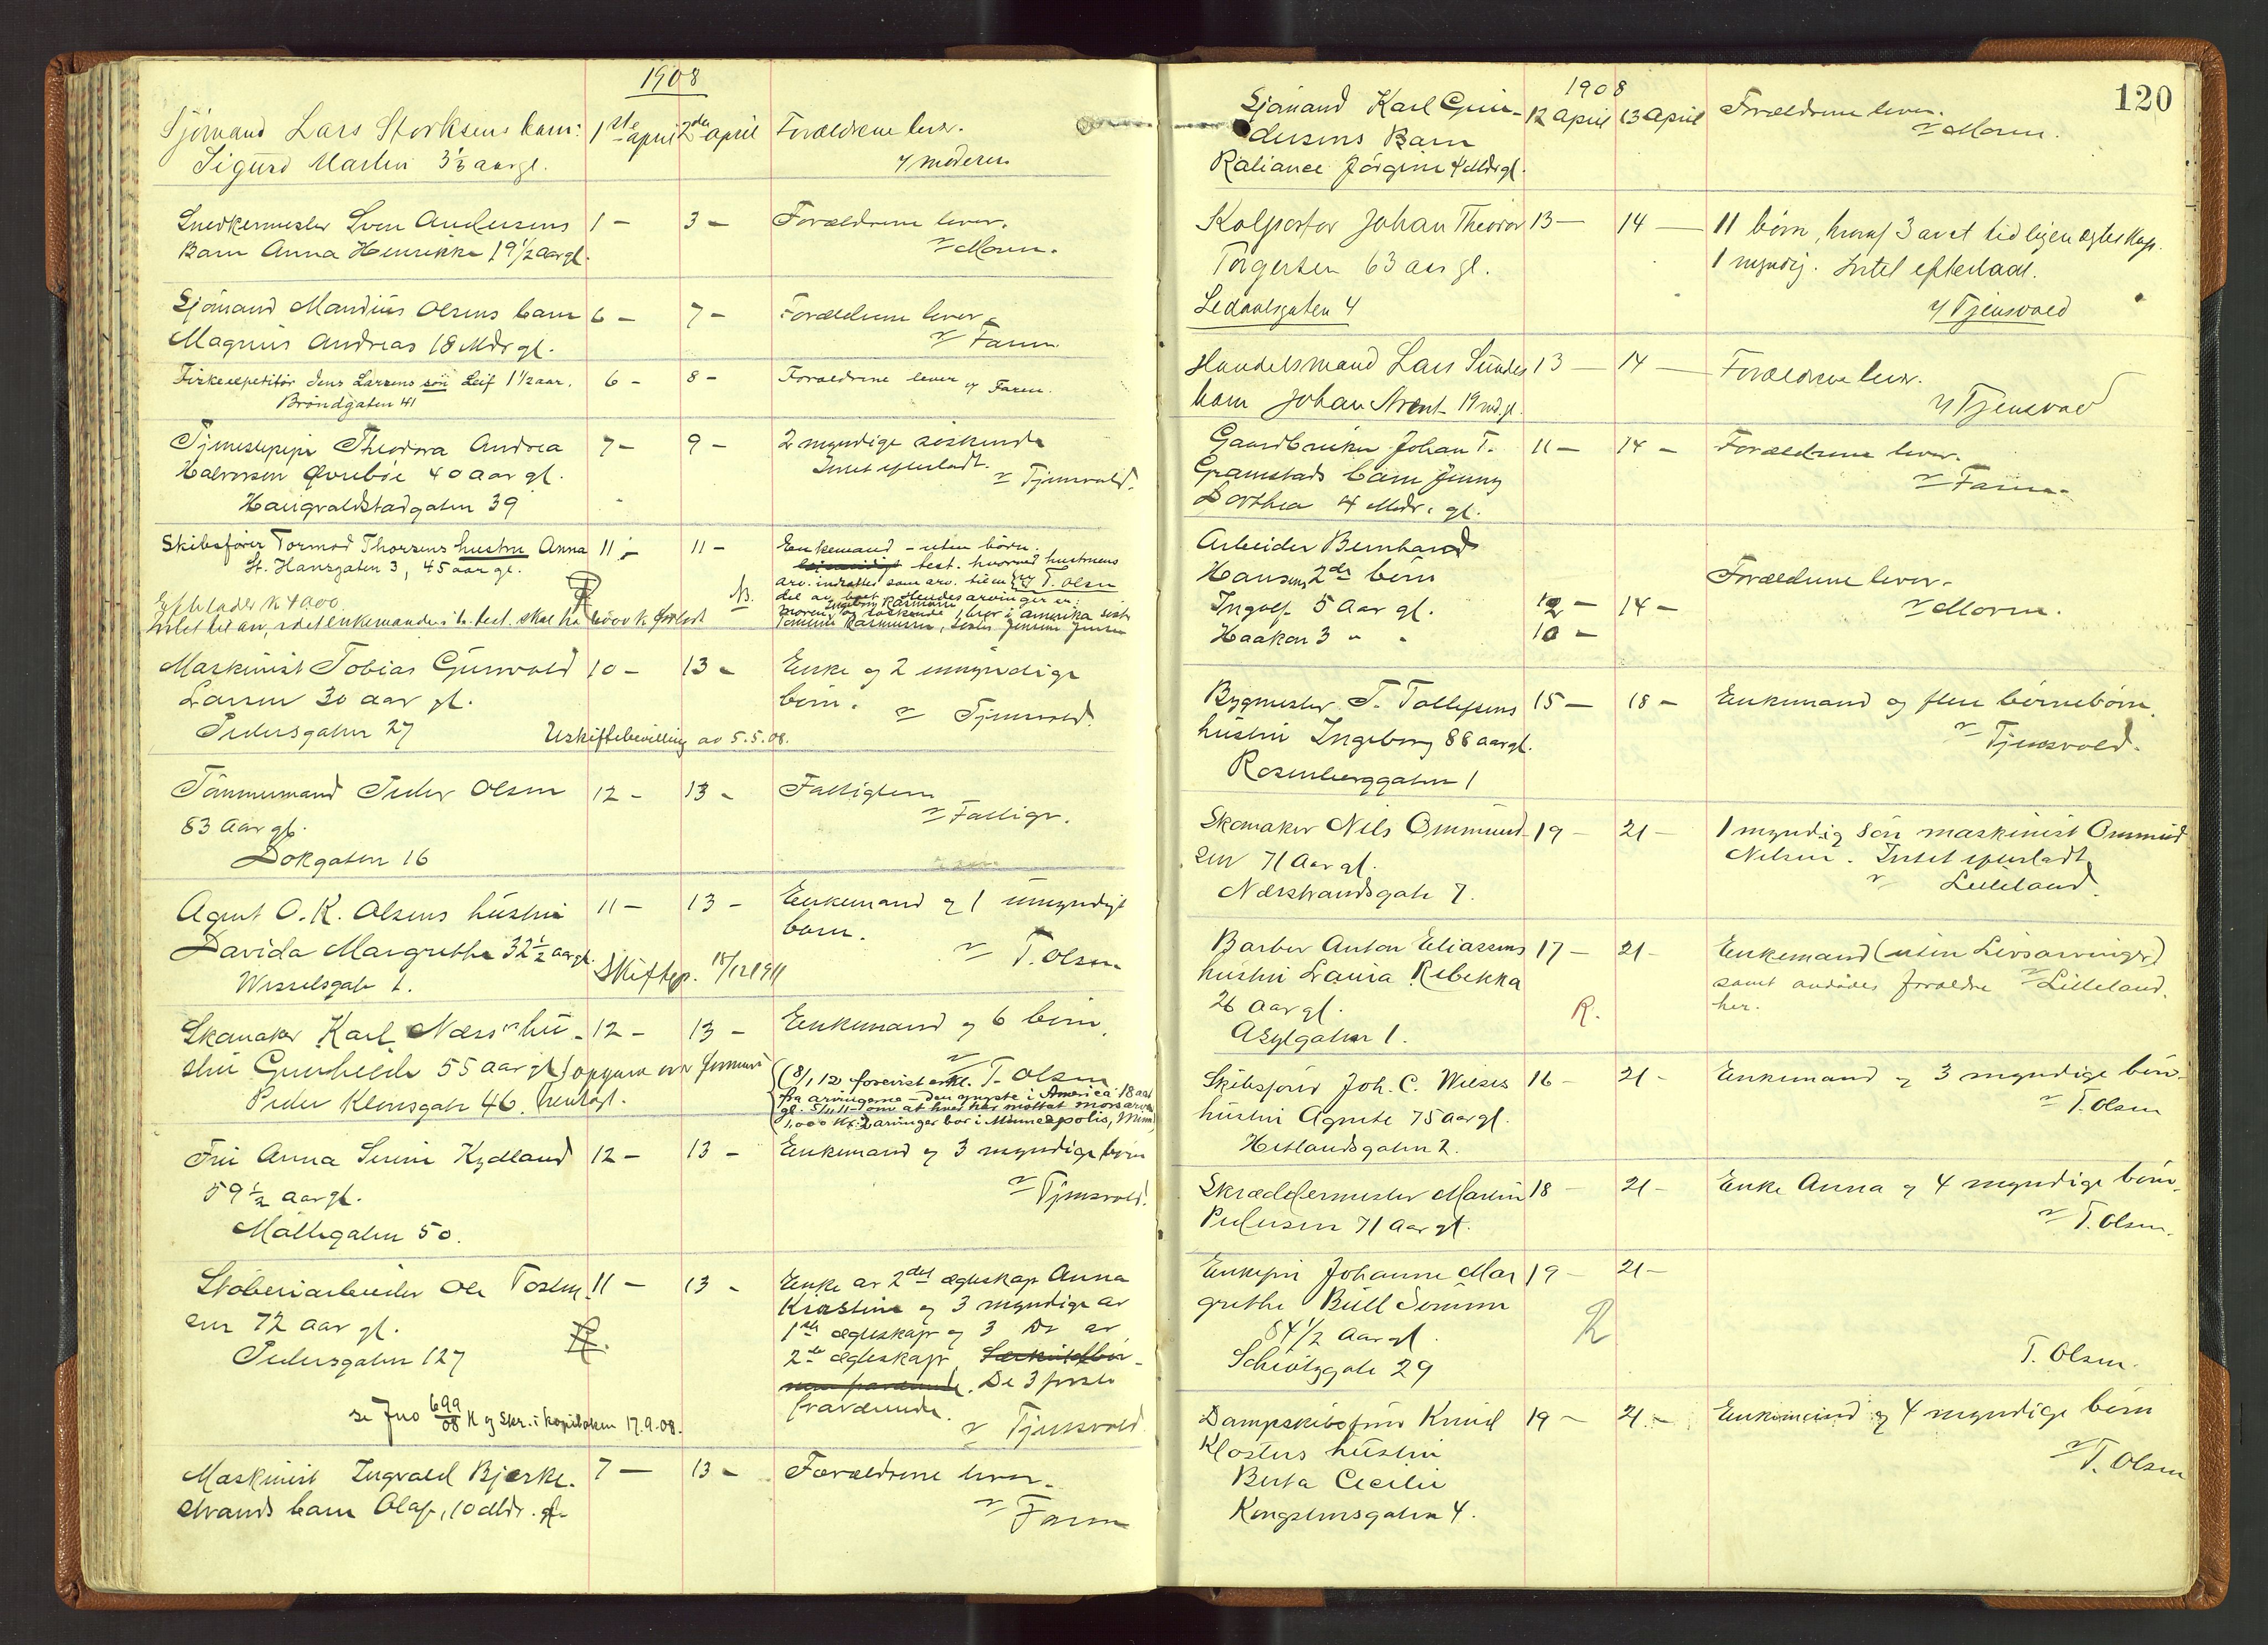 1908
Sjømand Lars Storksens barn: 1ste april 2den april Forældrene lever.
Sigurd Martin 3½ aar gl. v/ moderen
Snedkermester Sven Andersens 1 – 3 – Forældrene lever.
Barn Anna Henrikke 19½ aar gl. v/ Moren.
Sjømand Mandius Olsens barn 6 – 7 – Forældrene lever.
Magnus Andreas 18 Mdr gl. v/ Faren
Jens Larsens søn Leif 1½ aar. 6 – 8 – Forældrene lever v/ Faren.
Brøndgaten 41
Tjenestepige Theodora Andrea 7 – 9 – 2 myndige søskende
Halvorsen Øvrebøe 40 aar gl. Intet efterladt.
Haugvaldstadgaten 39 v/ Tjensvold.
Skibsfører Tormod Thorsens hustru Anna 11 – 11 – Enkemand – uten børn.
St. Hansgaten 3, 45 aar gl. test. hvorved hustruens
R arv. indsættes som arv. v/ T. Olsen
Efterlader k 4000 NB. del av boet. Hendes arvinger er:
Maskinist Tobias Gunvald 10 – 13 – Enke og 2 umyndige
Larsen 30 aar gl. børn.
Pedersgaten 27 v/ Tjensvold.
Uskiftebevilling av 5.5.08.
Tømmermand Peder Olsen 12 – 13 – Fattiglem
83 aar gl. v/ Fattigv.
Dokgaten 16
Agent O. K. Olsens hustru 11 – 13 – Enkemand og 1 umyndigt
barn.
Davida Margrethe 32½ aar gl. v/ T. Olsen
Wesselsgate 1. Skiftep. 18/12 1911
Skomaker Karl Næss' hu- 12 – 13 – Enkemand og 6 børn.
stru Gunhilde 55 aar gl. v/ T. Olsen
Peder Klowsgate 46. (8/1 12) forevist erkl.
fra arvingerne – den yngste i America 18 aar
gl. 5/11 11 – om at hver har mottat morsarv
1,000 kr. 2 arvinger bor i Minneapolis, Minn)
Fru Anna Serine Kydland 12 – 13 – Enkemand og 3 myndige børn
59½ aar gl. v/ Tjensvold.
Møllegaten 50.
Støberiarbeider Ole Tosten- 11 – 13 – Enke av 2det ægteskap Anna
sen 72 aar gl. Kirstine og 3 myndige av
R. 1ste ægteskap og 3 Do av
Pedersgaten 127 2de ægteskap
De 3 første
fraværende.
se Jno 699/08 K og Skr. i kopiboken 17.9.08. v/ Tjensvold
Maskinist Ingvald Bjerke- 7 – 13 – Forældrene lever.
strands barn Olaf, 10 Mdr. gl. v/ Faren
120
1908
Sjømand Karl Gun- 12 april 13 april Forældrene lever.
dersens Barn v/ Moren.
Raliance Jørgine 4 Mdr gl.
Kolportør Johan Theodor 13 – 14 – 11 børn, hvoraf 3 av et tidligere ægteskap.
Torgersen 63 aar gl. 1 myndig. Intet efterladt.
Ledaalsgaten 4 v/ Tjensvold
Handelsmand Lars Sundes 13 – 14 – Forældrene lever.
barn Johan Arent 19 md. gl. v/ Tjensvold
Gaardbruker Johan T. 11 – 14 – Forældrene lever.
Gramstads barn Jenny v/ Faren
Dorthea 4 Mdr. gl.
Arbeider Bernhard
Hansens 2de børn Forældrene lever.
Ingolf 5 Aar gl. 12 – 14 – v/ Moren.
Haakon 3 " " 10 –
Bygmester T. Tollefsens 15 – 18 – Enkemand og flere børnebørn.
hustru Ingeborg 86 aar gl. v/ Tjensvold.
Rosenberggaten 1
Skomaker Nils Ommund- 19 – 21 – 1 myndig søn maskinist Ommund
sen 71 Aar gl. Nilsen. Intet efterladt
Nærstrandsgate 7. v/ Lilleland.
Barber Anton Eliassens 17 – 21 – Enkemand (uten Livsarvinger)
hustru Laura Rebekka samt avdødes forældre v/ Lilleland.
26 Aar gl. R. her.
Asylgaten 1.
Skibsfører Joh. C. Wieses 16 – 21 – Enkemand og 3 myndige børn.
hustru Agnete 75 aar gl. v/ T. Olsen
Hetlandsgaten 2.
Skræddermester Martin 18 – 21 – Enke Anna og 4 myndige børn.
Pedersen 71 Aar gl. v/ T. Olsen.
Enkefru Johanne Mar 19 – 21 –
grethe Büll Sømme
84½ Aar gl. R
Schiøtzgate 29 T. Olsen.
Dampskibsfører Knud 19 – 21 – Enkemand og 4 myndige børn
Klosters hustru v/ T. Olsen
Berta Cecilie
Kongsteinsgaten 4.